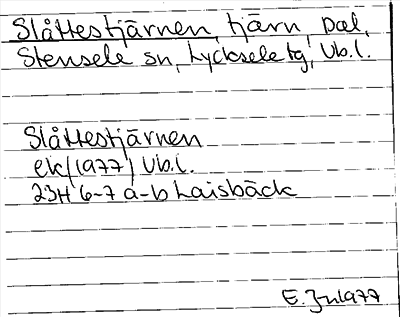 Slåttestjärnen, tjärn, Dal,
Stensele sn, Lycksele tg, Vb.l.
Slåttestjärnen
ek (1977) Vb.l.
23H 6-7 a-b Laisbäck
E. Jn 1977